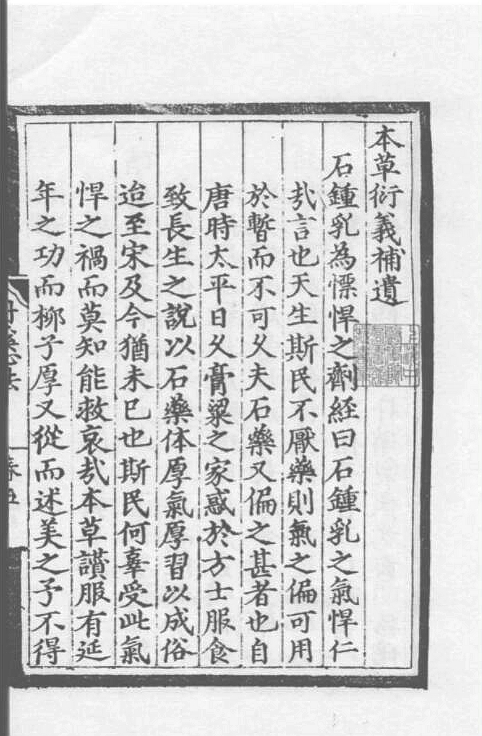 本草衍義補遺
石鍾乳為慓悍之劑経曰石鍾乳之氣悍仁
㢤言也天生斯民不厭藥則氣之偏可用
於暫而不可乆夫石藥又偏之甚者也自
唐時太平日乆膏粱之家惑於方士服食
致長生之說以石藥体厚氣厚習以成俗
迨至宋及今猶未已也斯民何辜受此氣
悍之禍而莫知能救哀㢤本草讃服有延
年之功而柳子厚又從而述美之予不得